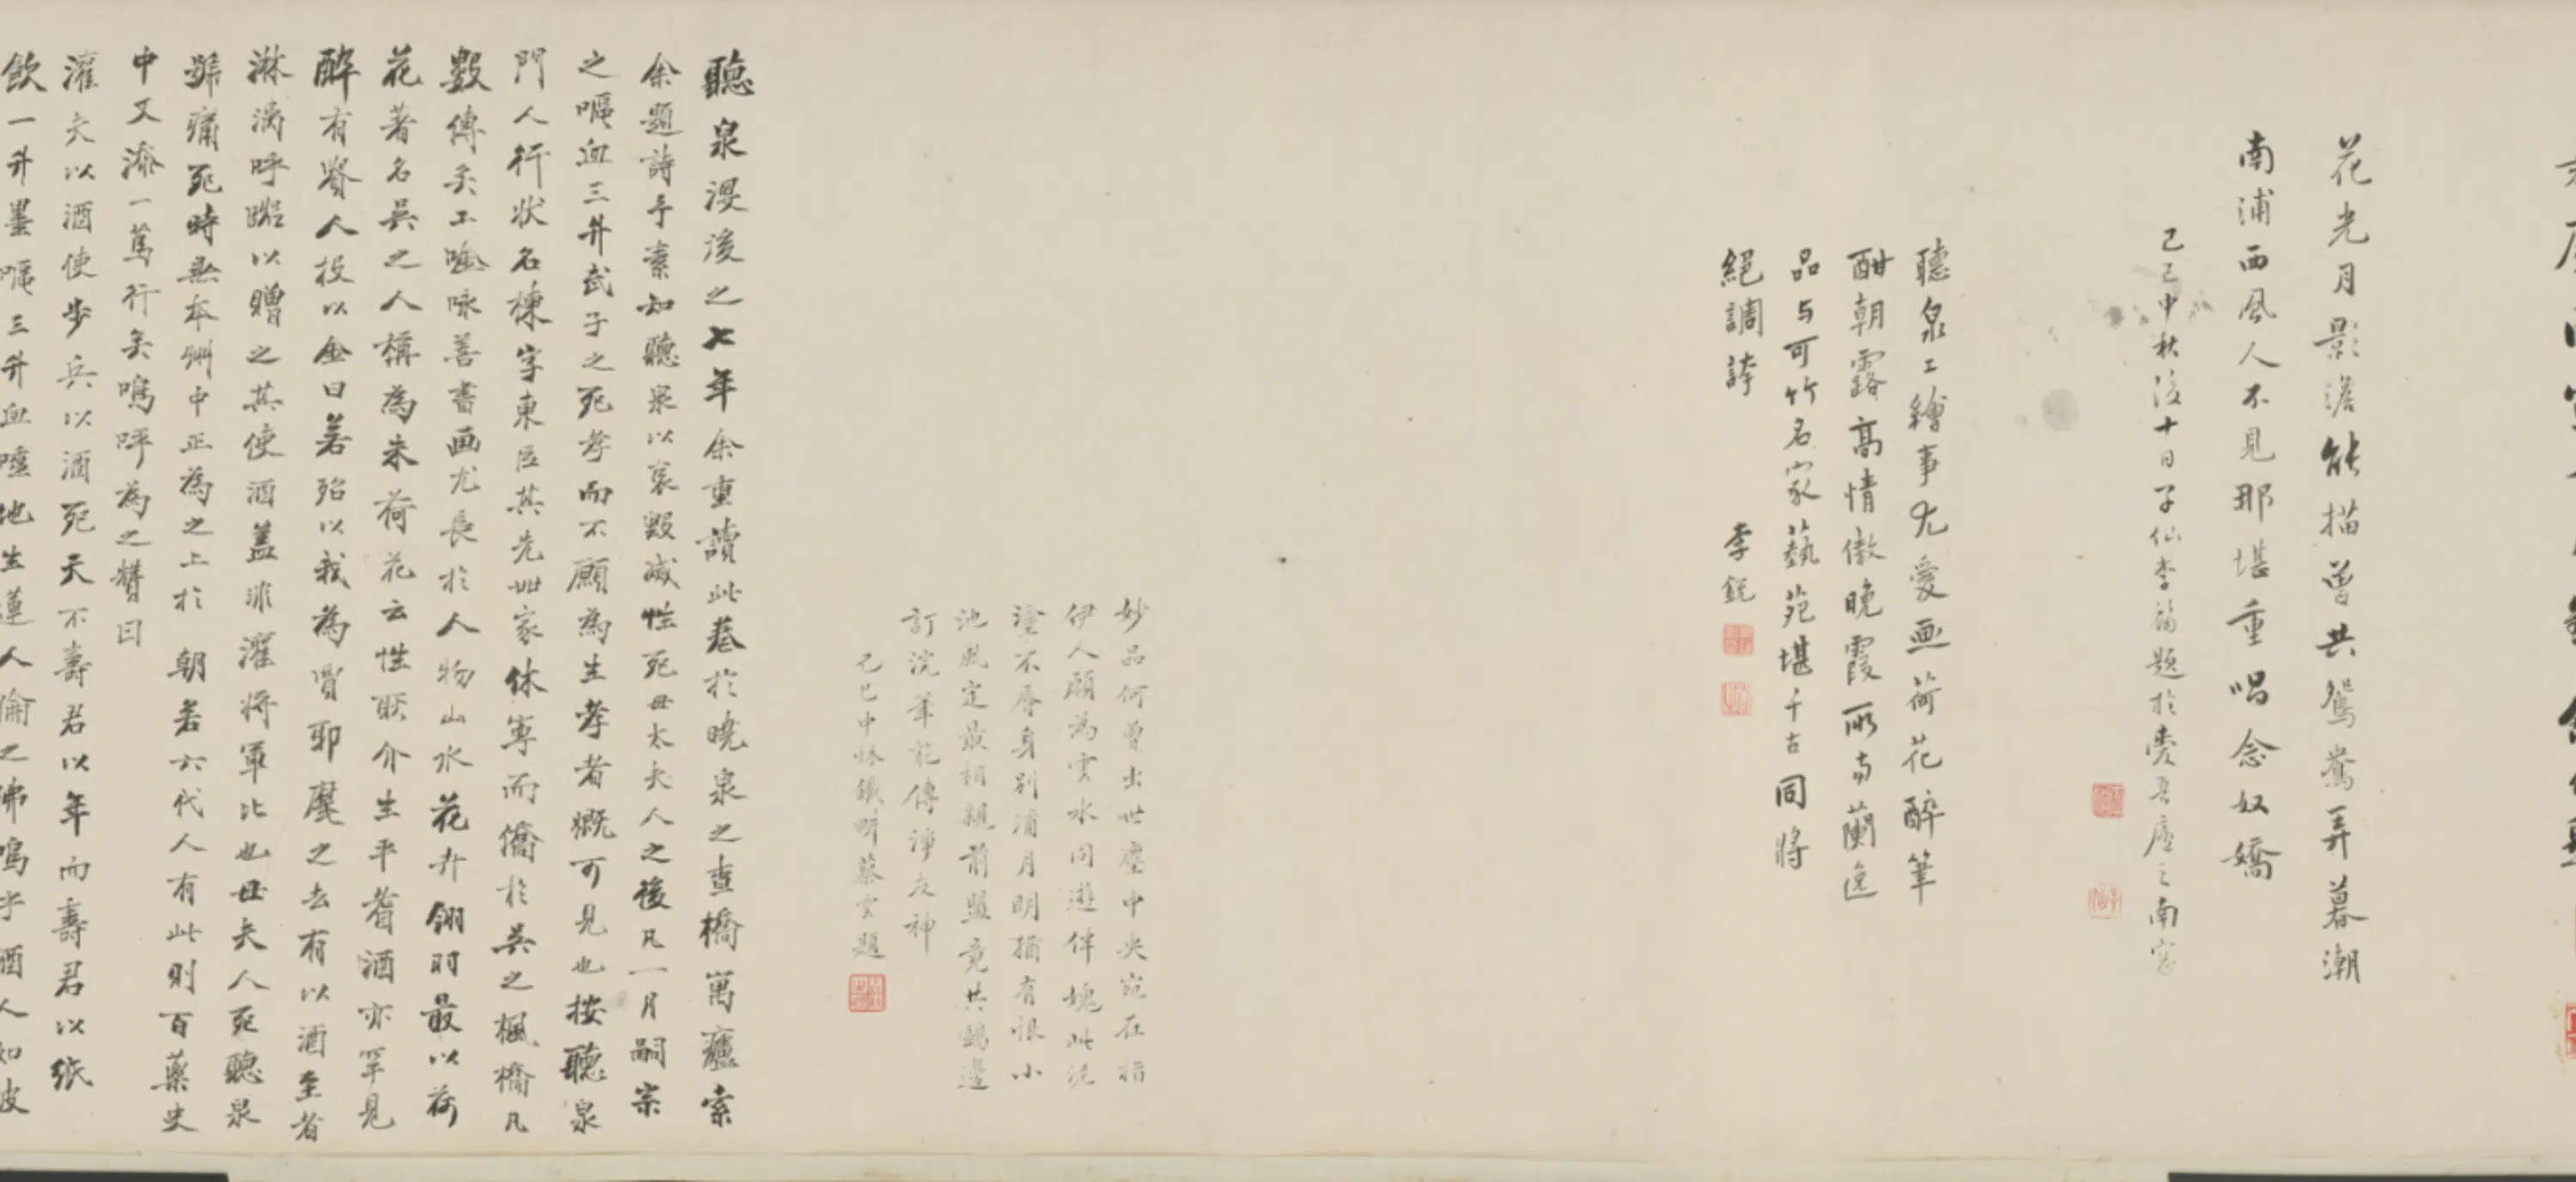 花光月影澹能描曾共鴛鴦弄暮潮
南浦西風人不見那堪重唱念奴嬌
己巳中秋後十日子仙李福題於愛吾廬之南窗
聽泉工繪事尤愛画荷花醉筆
酣朝露高情傲晚霞所南蘭逸
品与可竹名家藝苑堪千古同將
絕調誇 李銳
妙品何曾出世塵中央宛在指
伊人願為雲水同遊伴媿此泥
塗不辱身別浦月明猶有恨小
池風定最相親前盟竟共鷗邊
訂浣筆能傳淨友神
己巳中秋鐵畊蔡雲題
聽泉沒後之七年余重讀此卷於曉泉之查橋寓廬索
余題詩予素知聽泉以哀毀滅性死母太夫人之後凡一月嗣宗
之嘔血三升武子之死孝而不顧為生孝者概可見也按聽泉
門人行狀名棟字東臣其先世家休寧而僑於吳之楓橋凡
數傳矣工唫咏善書画尤長於人物山水花卉翎時最以荷
花著名吳之人稱為朱荷花云性耿介生平嗜酒亦罕見
醉有貴人投以金曰若殆以我為賈耶麾之去有以酒至者
淋漓呼 以贈之其使酒蓋非灌將軍比也母夫人死聽泉
號痛死時無本州中正為之上於 朝若六代人有此則百藥史
中又添一篤行矣嗚呼為之贊曰
灌夫以酒使步兵以酒死天不壽君以年而壽君以紙
飲一升墨嘔三升血噴地生蓮人倫之佛嗚乎酒人如波